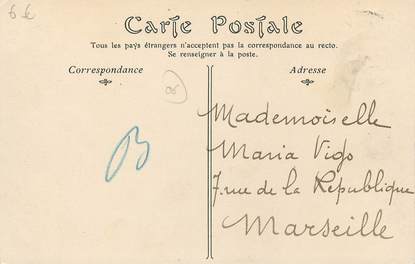 6 €
Carte Postale
Tous les pays étrangers n'acceptent pas la correspondance au recto.
Se renseigner à la poste.
Correspondance
Adresse
B
Mademoiselle
Maria Vigo
7 rue de la République
Marseille